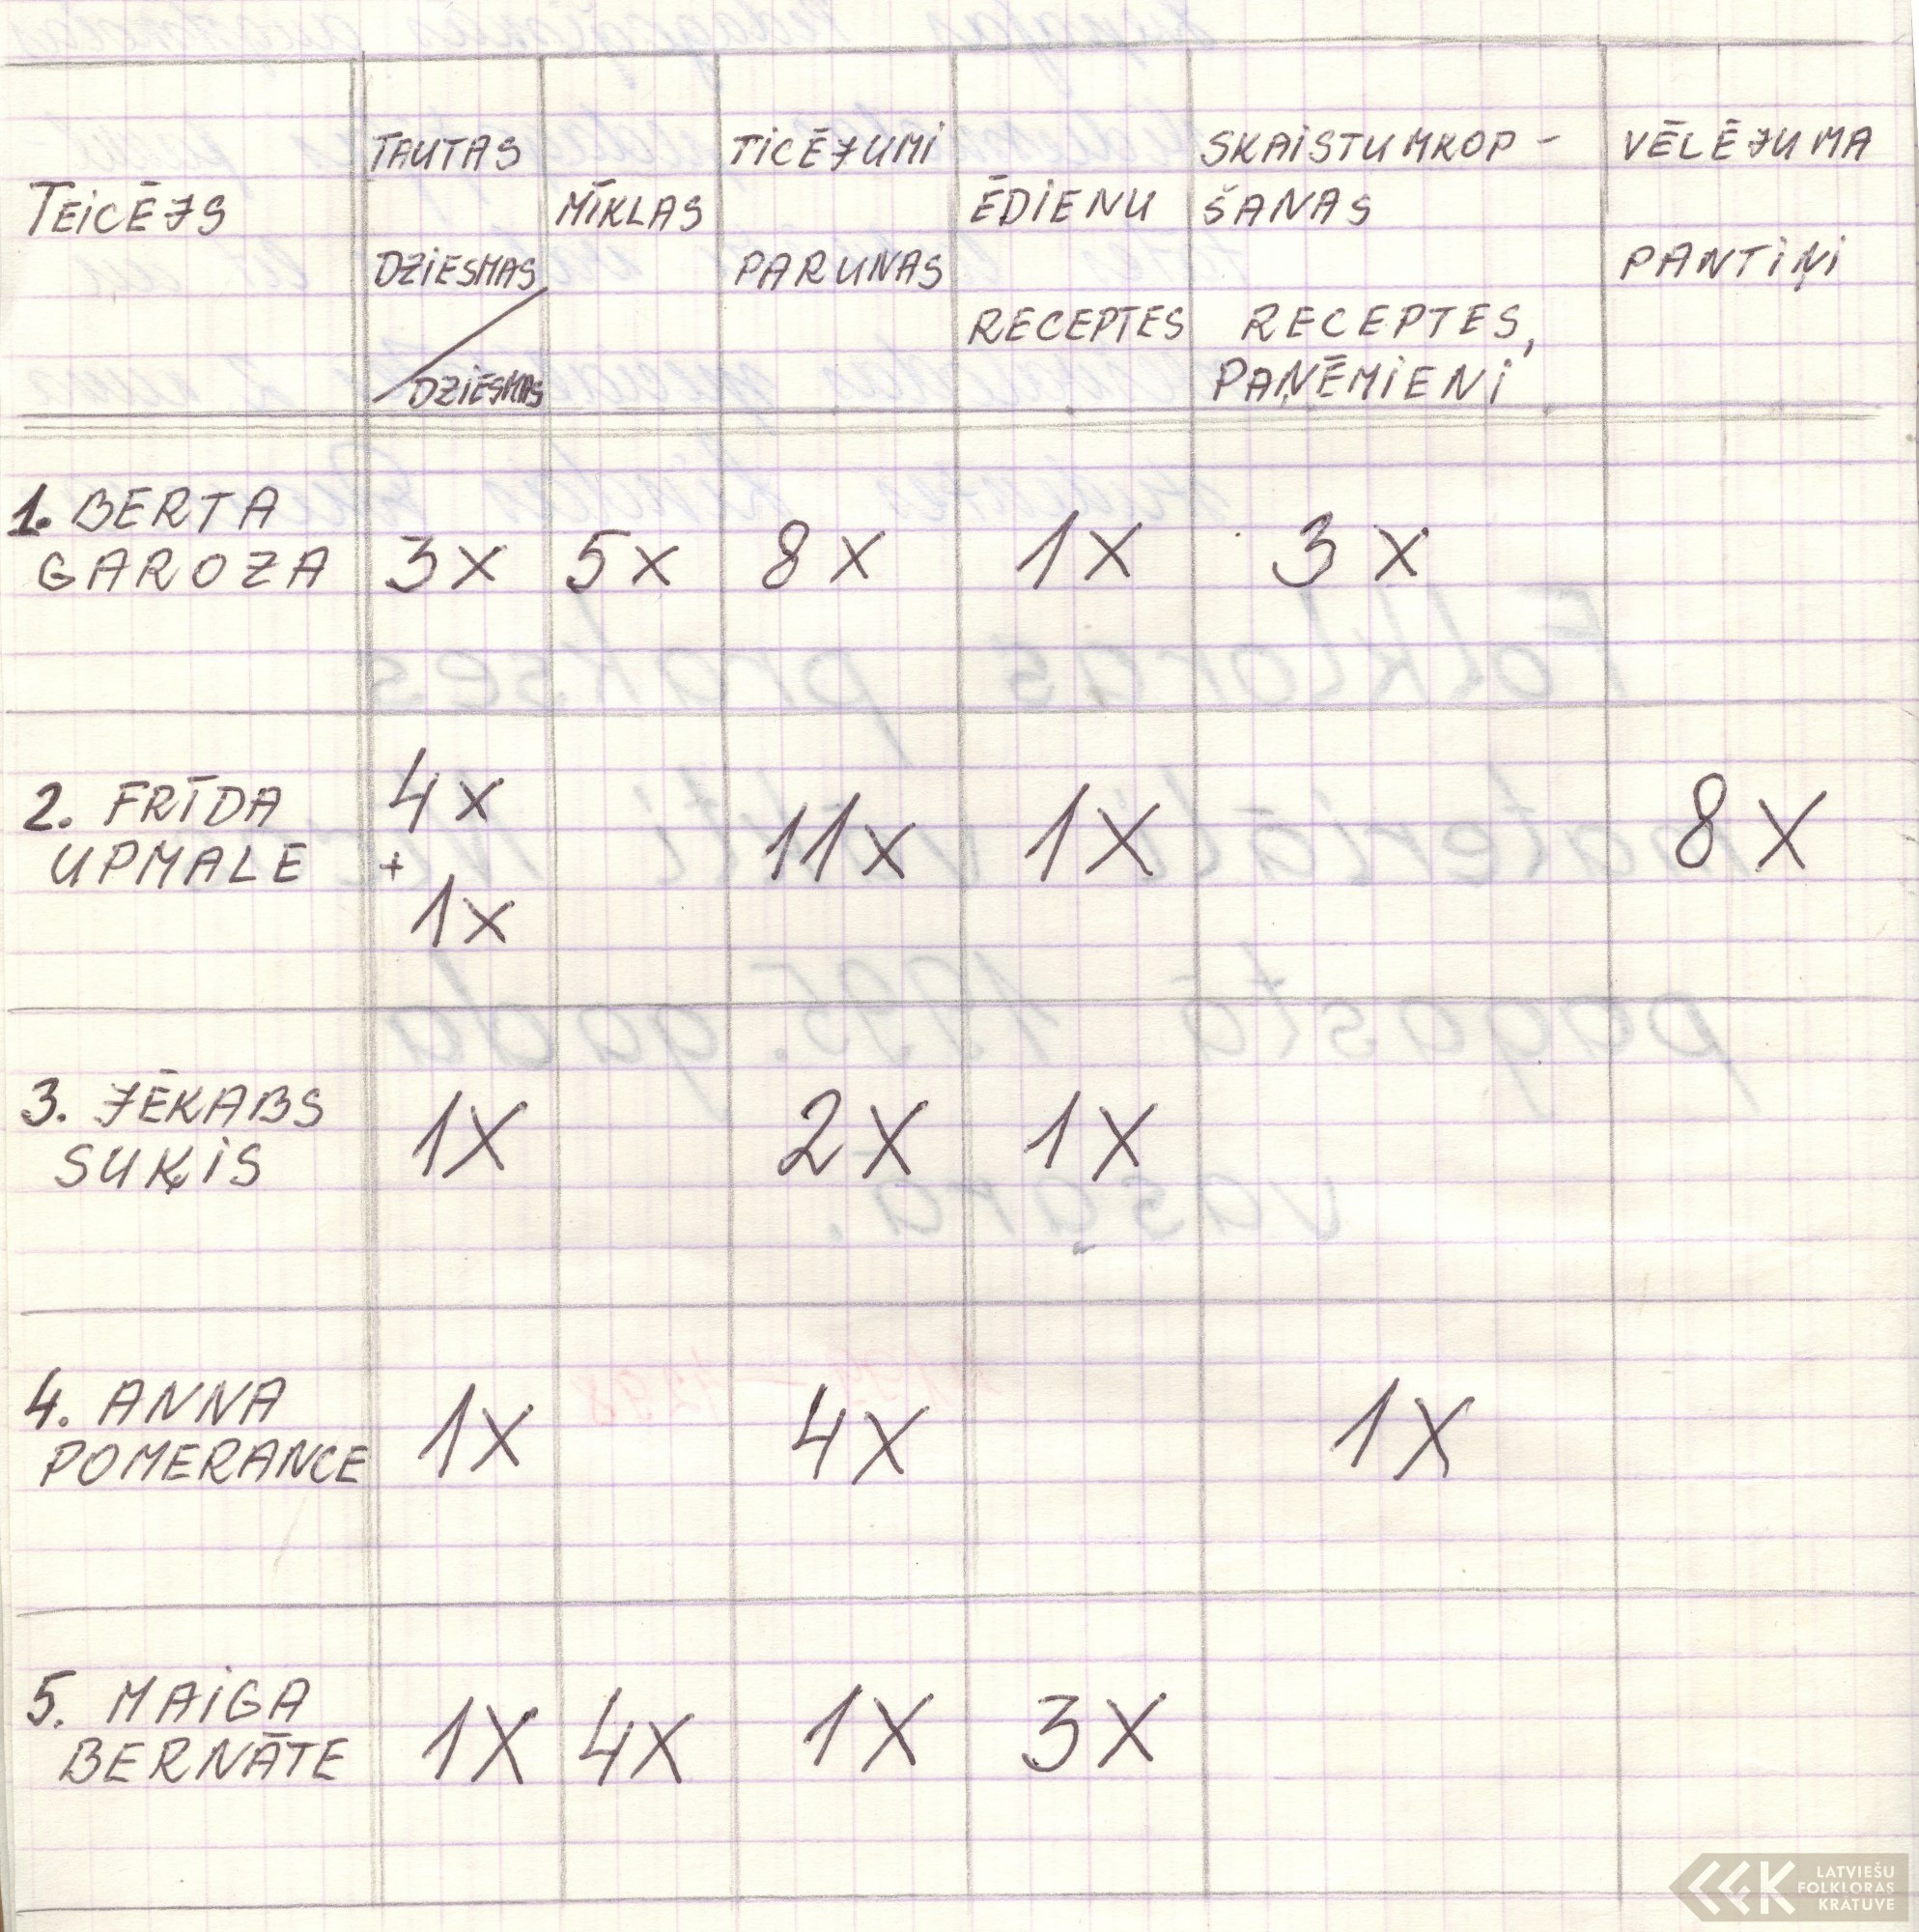 TEICĒJS
TAUTAS
DZIESMAS
DZIESMAS
MĪKLAS
TICĒJUMI
PARUNAS
ĒDIENU
RECEPTES
SKAISTUMKOP-
ŠANAS
RECEPTES,
PAŅĒMIENI
VĒLĒJUMA
PANTIŅI
1. BERTA
GAROZA 3x 5x 8x 1x 3x
2. FRĪDA
UPMALE
4x
+
1x
11x 1x 8x
3. JĒKABS
SUĶIS 1x 2x 1x
4. ANNA
POMERANCE 1x 4x 1x
5. MAIGA
BERNĀTE 1x 4x 1x 3x
Folkloras prakses
pagastā 1995. gada
vasarā.
LATVIEŠU
FOLKLORAS
KRĀTUVE